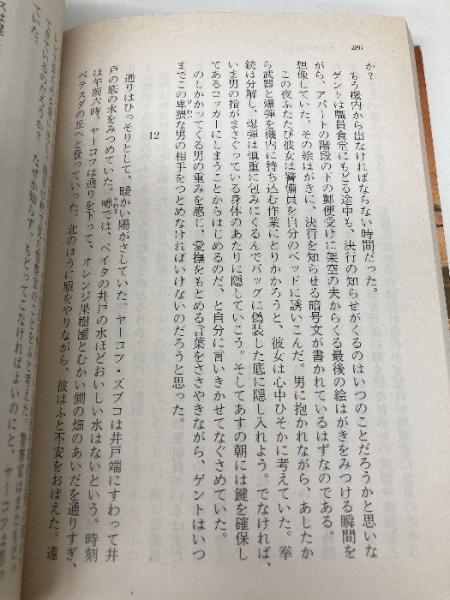 286
か？
もう機内から出なければならない時間だった。
ゲントは職員食堂にもどる途中も、決行の知らせがくるのはいつのことだろうかと思いな
がら、アパートの階段の下の郵便受けに架空の夫からくる最後の絵はがきをみつける瞬間を
想像していた。その絵はがきに、決行を知らせる暗号文が書かれているはずなのである。
この夜ふたたび彼女は警備員を自分のベッドに誘いこんだ。男に抱かれながら、あしたか
ら武器と爆弾を機内に持ち込む作業にとりかかろうと、彼女は心中ひそかに考えていた。拳
銃は分解し、爆弾は慎重に包みにくるんでバッグに偽装した底に隠し入れよう。でなければ、
いま男の指がまさぐっている身体のあたりに隠していこう。そしてあすの朝には鍵を確保し
てあるロッカーにしまうことからはじめるのだ、と自分に言いきかせてなぐさめていた。
のしかかってくる男の重みを感じ、愛撫をもとめる言葉をささやきながら、ゲントはいつ
までこの卑猥な男の相手をつとめなければいけないのだろうと思った。
12
通りはひっそりとして、暖かい陽がさしていた。ヤーコフ・ズブコは井戸端にすわって井
戸の底の水をみつめていた。噂では、ベイタの井戸の水ほどおいしい水はないという。時刻
は午前六時。ヤーコフは通りを下って、オレンジ果樹園とむかい側の畑のあいだを通りすぎ、
ベテスダの丘へと登っていった。北のほうに眼をやりながら、彼はふと不安をおぼえた。遠